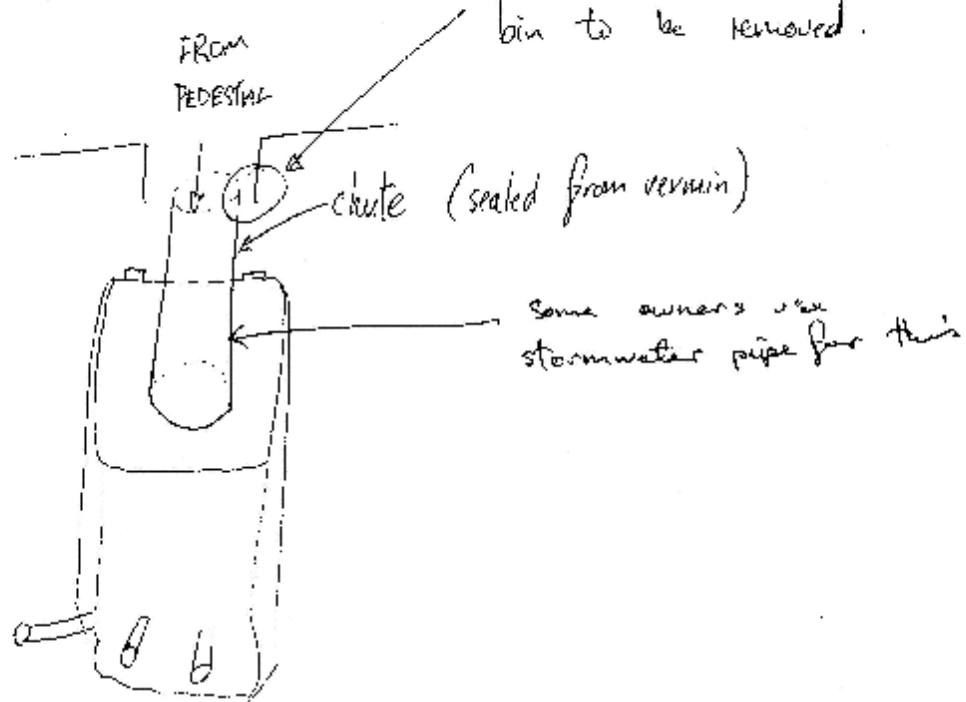 bin to be removed.
FROM
PEDESTAL
chute (sealed from vermin)
Some owners use
stormwater pipe for this